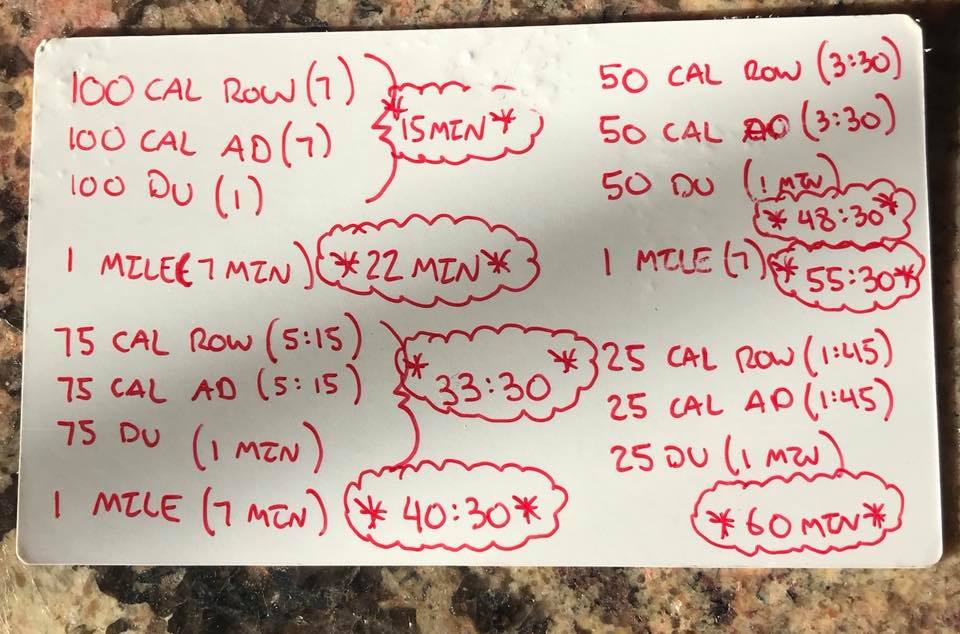 100 CAL ROW (7)
100 CAL AD (7)
100 DU (1)
*15 MIN*
1 MILE (7 MIN) *22 MIN*
75 CAL ROW (5:15)
75 CAL AD (5:15)
75 DU (1 MIN)
* 33:30 *
1 MILE (7 MIN) * 40:30 *
50 CAL ROW (3:30)
50 CAL AD (3:30)
50 DU (1 MIN)
* 48:30 *
1 MILE (7) * 55:30 *
25 CAL ROW (1:45)
25 CAL AD (1:45)
25 DU (1 MIN)
*60 MIN*